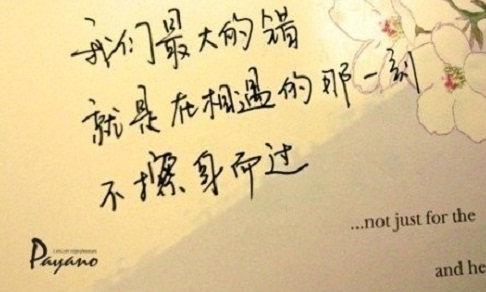 我们最大的错
就是在相遇的那一刻
不擦身而过
...not just for the
Payano
and he